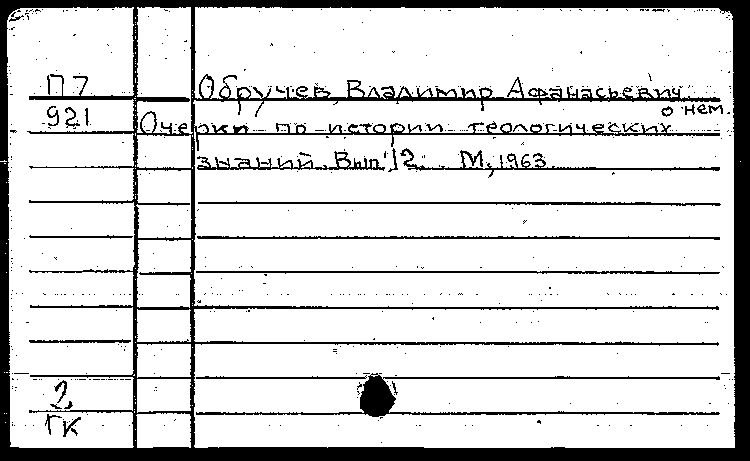 П7 Обручев, Владимир Афанасьевич
о нем.
921 Очерки по истории геологических
знаний. Вып. 12. М., 1963.
2
ГК